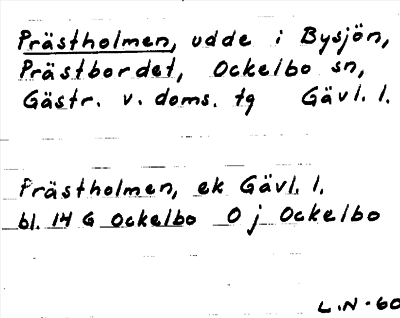 Prästholmen, udde i Bysjön,
Prästbordet, Ockelbo sn,
Gästr. v. doms. tg Gävl. l.
Prästholmen, ek Gävl. l.
bl. 14 G Ockelbo O j Ockelbo
L.N. 60